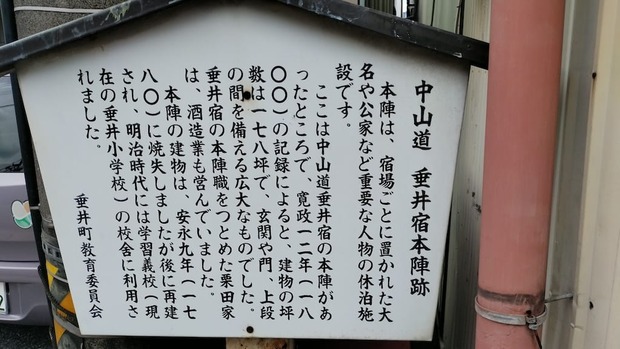 中山道 垂井宿本陣跡
本陣は、宿場ごとに置かれた大
名や公家など重要な人物の休泊施
設です。
ここは中山道垂井宿の本陣があ
ったところで、寛政一二年(一八
〇〇)の記録によると、建物の坪
数は一七八坪で、玄関や門、上段
の間を備える広大なものでした。
垂井宿の本陣職をつとめた栗田家
は、酒造業も営んでいました。
本陣の建物は、安永九年(一七
八〇)に焼失しましたが後に再建
され、明治時代には学習義校(現
在の垂井小学校)の校舎に利用さ
れました。
垂井町教育委員会
2